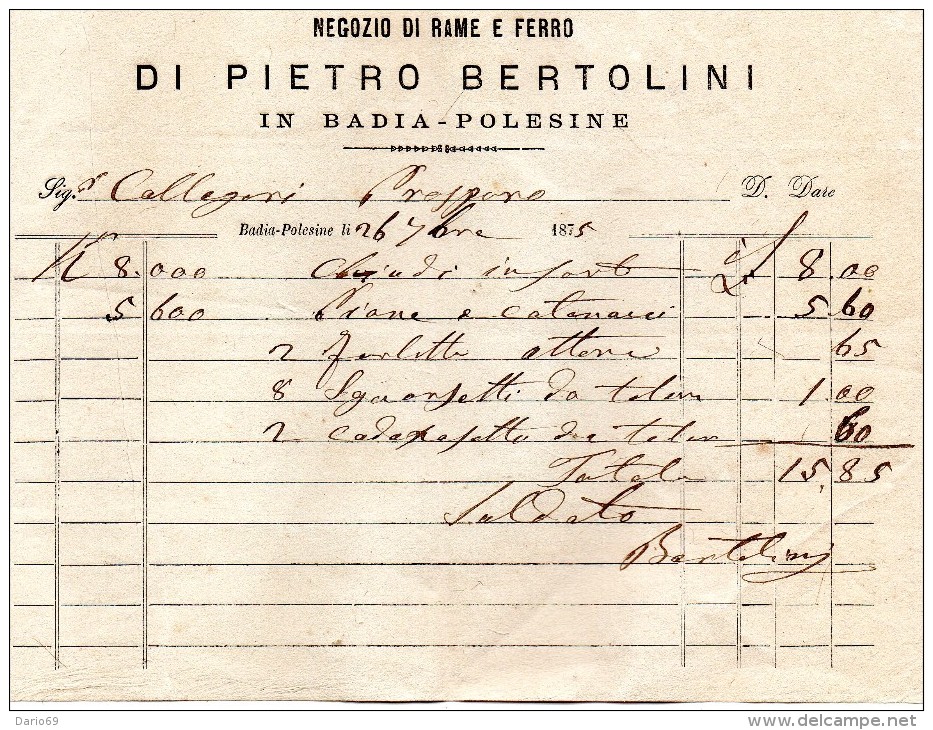 NEGOZIO DI RAME E FERRO
DI PIETRO BERTOLINI
IN BADIA-POLESINE
Sig.r Callegari Prospero D. Dare
Badia-Polesine li 26 7bre 1875
K 8.000 Chiodi in sort 8.00
5 600 Piane e catenacci 5.60
2 ottone 65
8 da telar 1.00
2 da telar 60
Totale 15.85
Saldato
Bertolini
Dario69
www.delcampe.net